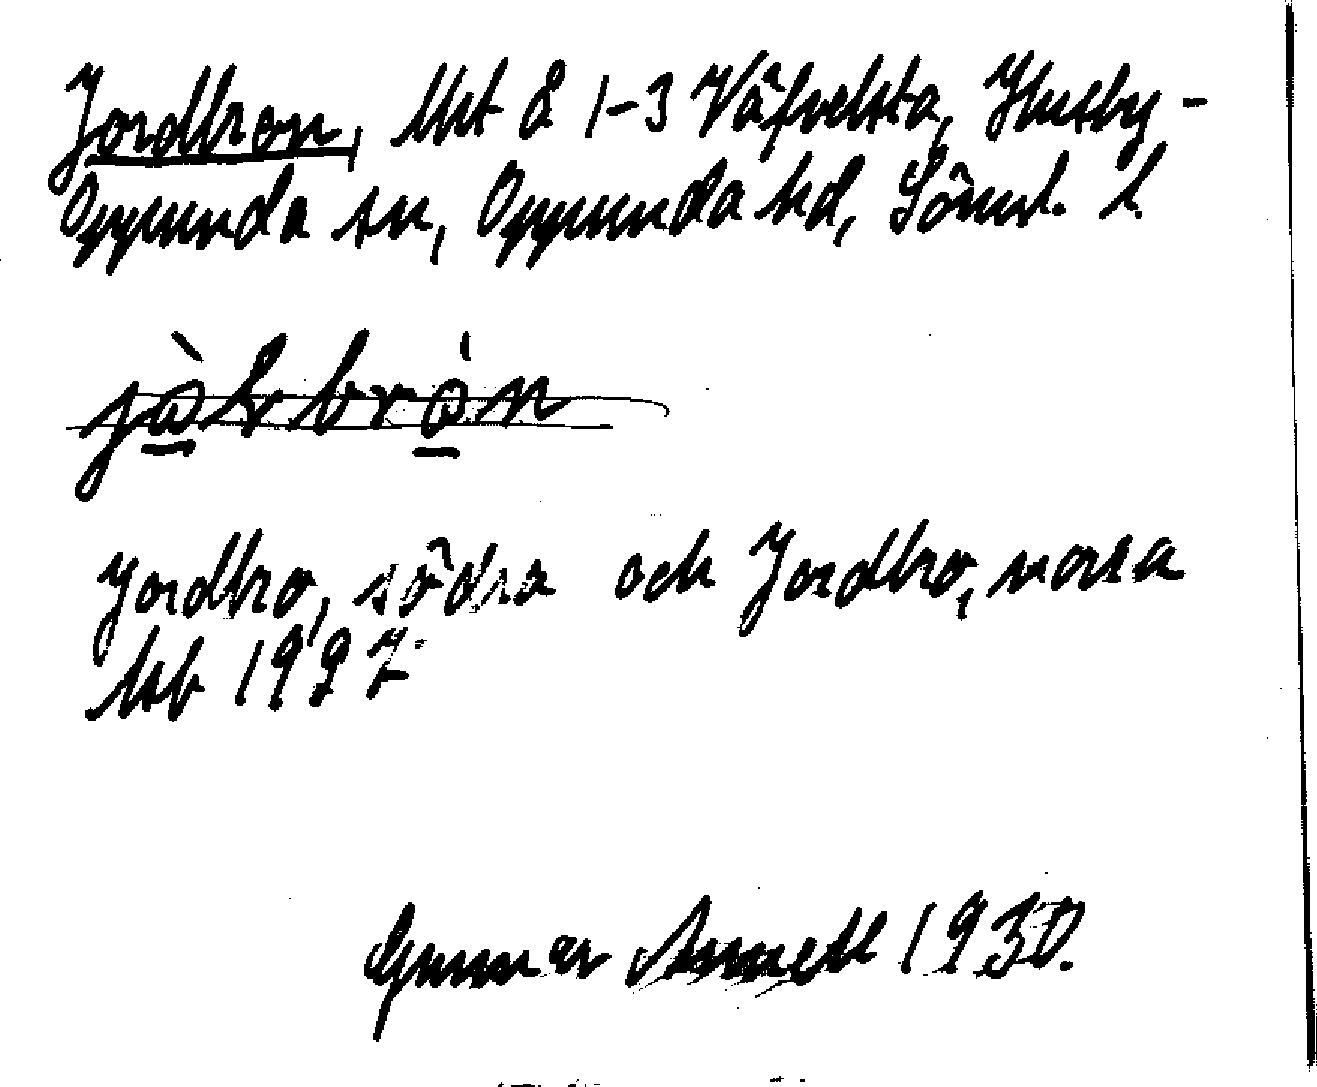 Jordbron, lht å 1-3 Väfvelsta, Husby-
Oppunda sn, Oppunda hd, Söml. l.
Jordbro, södra och Jordbro, norra
Jsb 1927
Gunnar 1930.